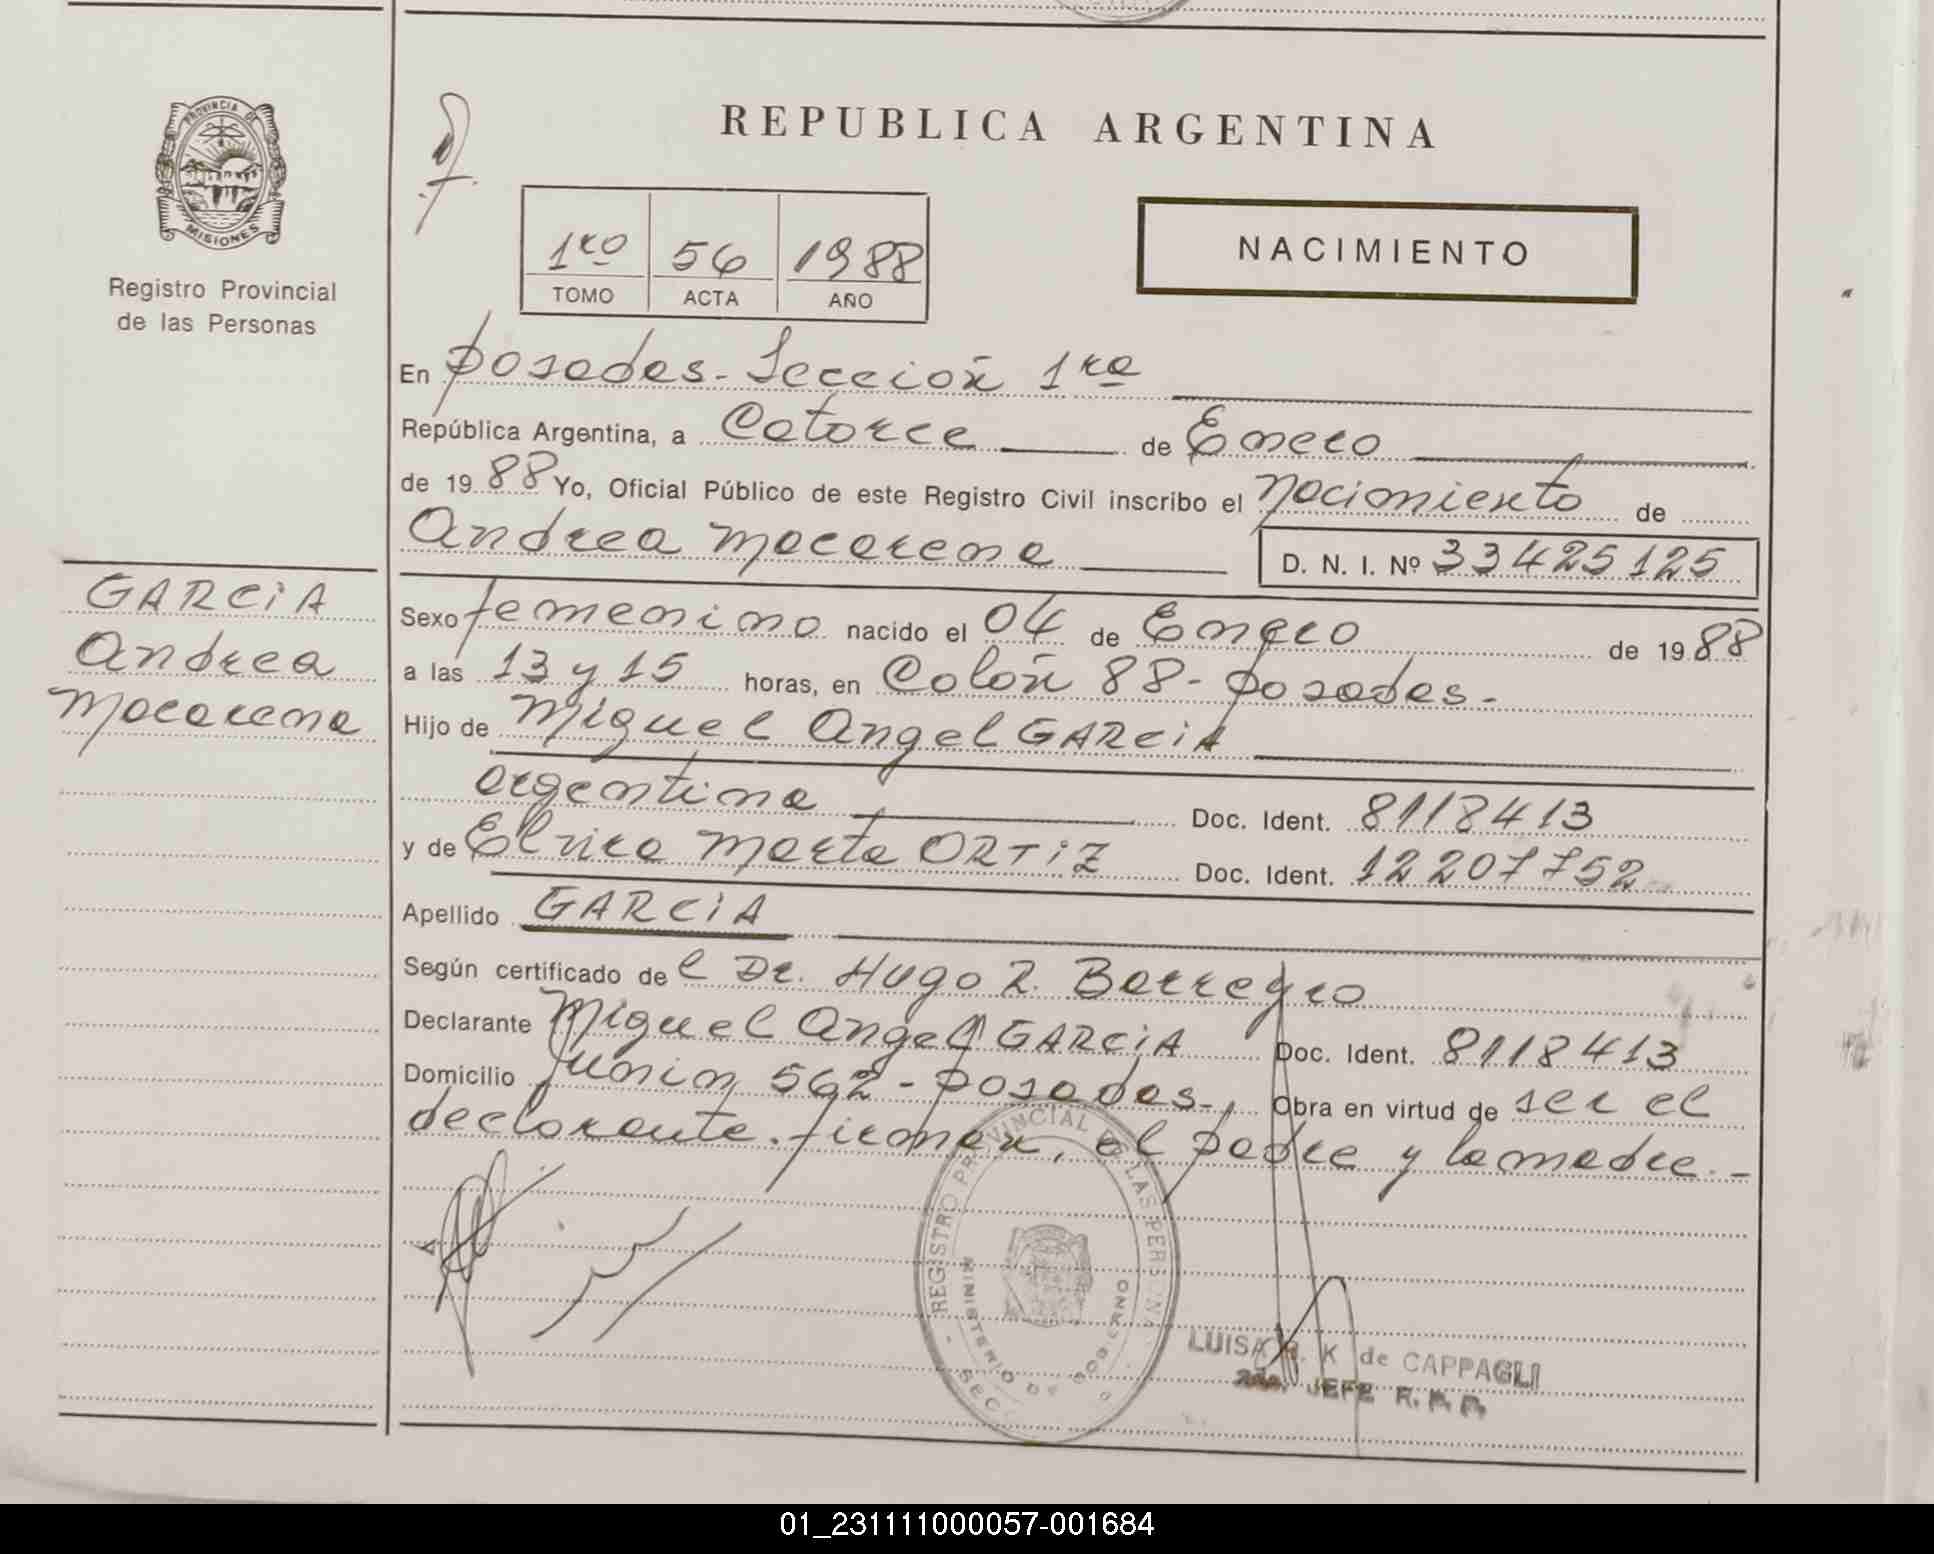 REPUBLICA ARGENTINA
PROVINCIA DE
MISIONES
Registro Provincial
de las Personas
1ro 56 1988
TOMO ACTA AÑO
NACIMIENTO
En Posadas - Sección 1ra
República Argentina, a Catorce de Enero
de 1988 Yo, Oficial Público de este Registro Civil inscribo el Nacimiento de
Andrea Macarena
D. N. I. Nº 33425125
GARCiA
Andrea
Macarena
Sexo femenino nacido el 04 de Enero de 1988
a las 13 y 15 horas, en Colón 88 - Posadas -
Hijo de Miguel Angel GARCiA
argentina Doc. Ident. 8118413
y de Elvira Marta ORTiZ Doc. Ident. 12207752
Apellido GARCiA
Según certificado de l Dr. Hugo R. Borregro
Declarante Miguel Angel GARCiA Doc. Ident. 8118413
Domicilio Junin 562 - Posadas - Obra en virtud de ser el
declarante. firman, el padre y la madre. -
REGISTRO PROVINCIAL DE LAS PERSONAS
MINISTERIO DE GOBIERNO
LUISA K de CAPPAGLI
JEFE R. P. P.
01_231111000057-001684